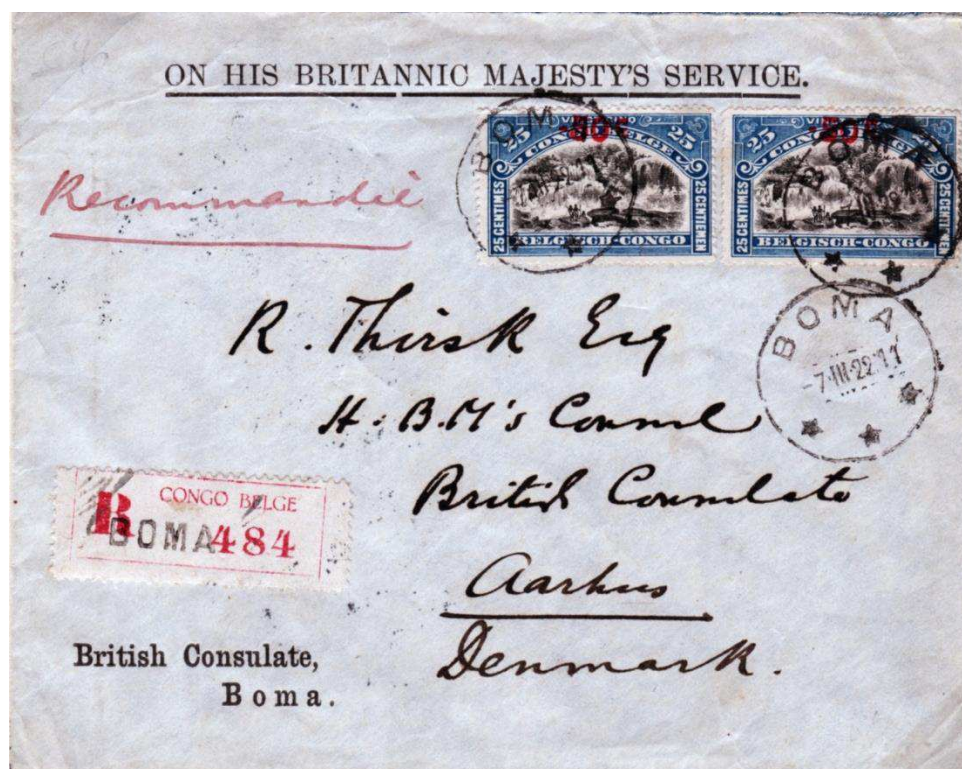 ON HIS BRITANNIC MAJESTY'S SERVICE.
Recommandée
25 25
CONGO BELGE
25 CENTIMES
25 CENTIEMEN
BELGISCH-CONGO
BOMA
25 25
CONGO BELGE
25 CENTIMES
25 CENTIEMEN
BELGISCH-CONGO
BOMA
BOMA
-7·III·22·11
R. Thirsk Esq
H.B.M's Consul
British Consulate
Aarhus
Denmark.
R CONGO BELGE
BOMA 484
British Consulate,
Boma.